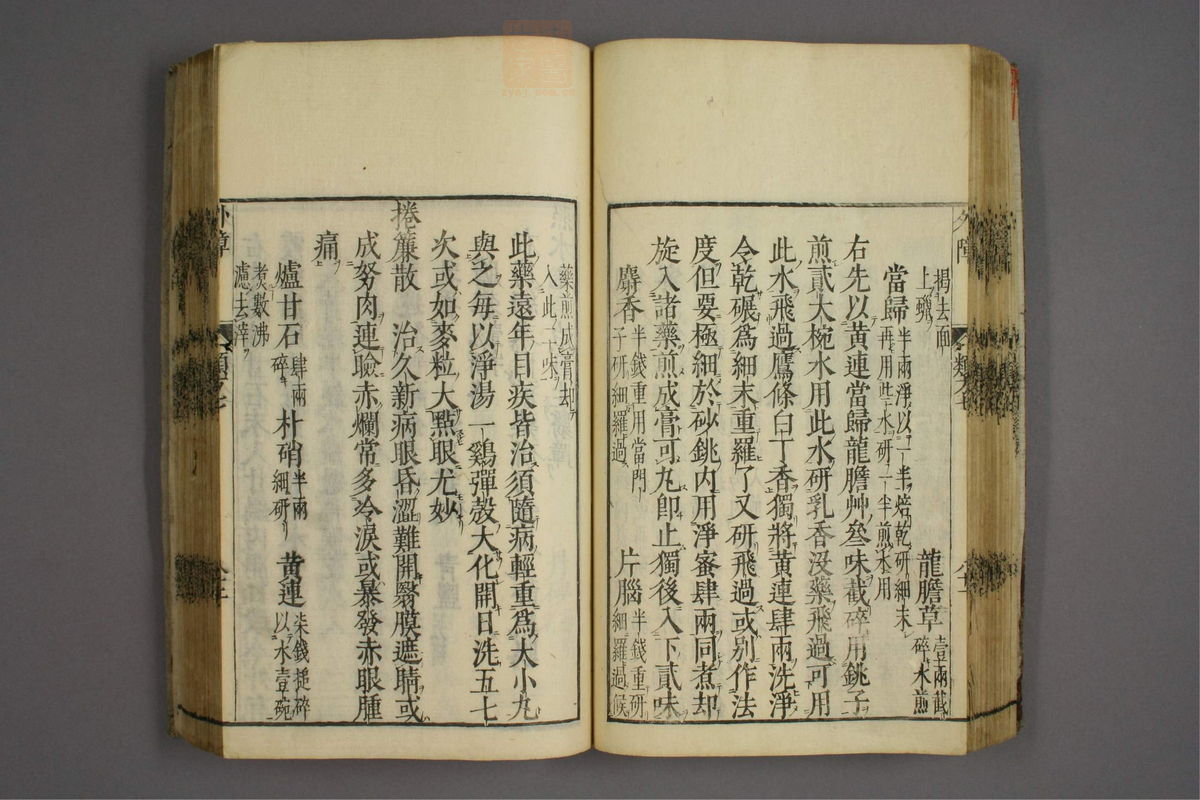 揭去面
上蠟
當歸 半兩淨以一半焙乾研細末 再用些水研一半煎水用 龍膽草 壹兩截碎水煎
右先以黃連當歸龍膽艸叄味截碎用銚子
煎貳大椀水用此水研乳香沒藥飛過可用
此水飛過鷹條白丁香獨將黃連肆兩洗淨
令乾碾爲細末重羅了又研飛過或别作法
度但要極細於砂銚内用淨蜜肆兩同煮却
旋入諸藥煎成膏可丸即止獨後入下貳味
麝香 半錢重用當門子研細羅過 片腦 半錢重研細羅過候
藥煎成膏却
入此二味
此藥遠年目疾皆治須隨病輕重爲大小丸
與之每以淨湯一鷄彈殻大化開日洗五七
次或如麥粒大點眼尤妙
捲簾散 治久新病眼昏澀難開翳膜遮睛或
成努肉連瞼赤爛常多冷淚或暴發赤眼腫
痛
爐甘石 肆兩碎 朴硝 半兩細研 黄連 柒錢搥碎以水壹碗
煮數沸
濾去滓
外障